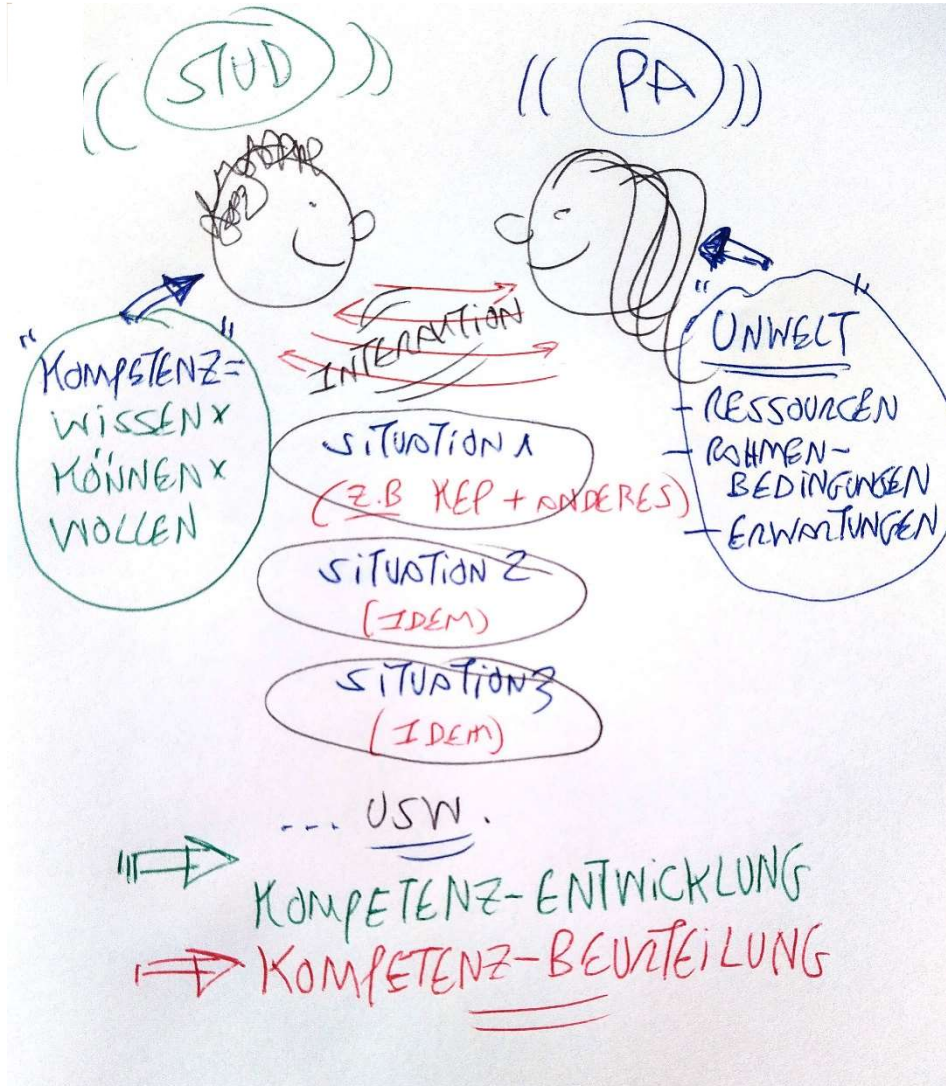 STUD
PA
INTERAKTION
"KOMPETENZ=
WISSEN X
KÖNNEN X
WOLLEN"
"UMWELT"
- RESSOURCEN
- RAHMEN-
BEDINGUNGEN
- ERWARTUNGEN
SITUATION 1
(Z.B KEP + ANDERES)
SITUATION 2
(IDEM)
SITUATION 3
(IDEM)
... USW.
KOMPETENZ-ENTWICKLUNG
KOMPETENZ-BEURTEILUNG